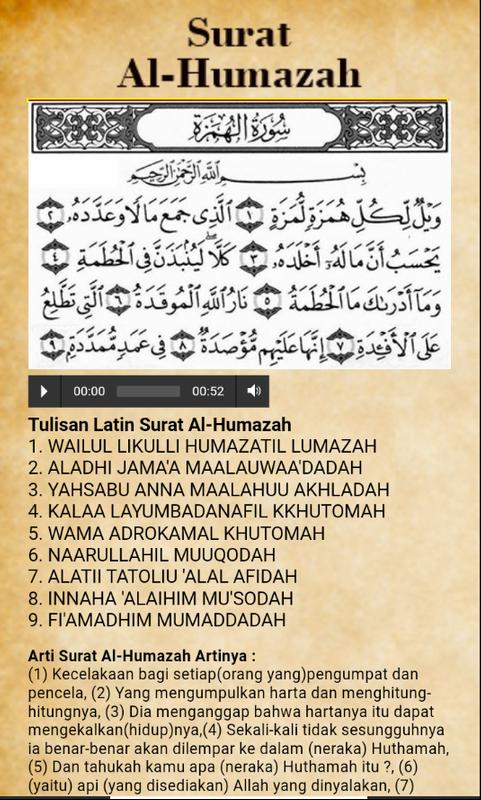 Surat
Al-Humazah
سُورَةُ الهُمَزَةِ
بِسْمِ اللَّهِ الرَّحْمَٰنِ الرَّحِيمِ
وَيْلٌ لِّكُلِّ هُمَزَةٍ لُّمَزَةٍ ١ الَّذِي جَمَعَ مَالًا وَعَدَّدَهُ ٢
يَحْسَبُ أَنَّ مَالَهُ أَخْلَدَهُ ٣ كَلَّا لَيُنبَذَنَّ فِي الْحُطَمَةِ ٤
وَمَا أَدْرَىٰكَ مَا الْحُطَمَةُ ٥ نَارُ اللَّهِ الْمُوقَدَةُ ٦ الَّتِي تَطَّلِعُ
عَلَى الْأَفْئِدَةِ ٧ إِنَّهَا عَلَيْهِم مُّؤْصَدَةٌ ٨ فِي عَمَدٍ مُّمَدَّدَةٍ ٩
00:00 00:52
Tulisan Latin Surat Al-Humazah
1. WAILUL LIKULLI HUMAZATIL LUMAZAH
2. ALADHI JAMA'A MAALAUWAA'DADAH
3. YAHSABU ANNA MAALAHUU AKHLADAH
4. KALAA LAYUMBADANAFIL KKHUTOMAH
5. WAMA ADROKAMAL KHUTOMAH
6. NAARULLAHIL MUUQODAH
7. ALATII TATOLIU 'ALAL AFIDAH
8. INNAHA 'ALAIHIM MU'SODAH
9. FI'AMADHIM MUMADDADAH
Arti Surat Al-Humazah Artinya :
(1) Kecelakaan bagi setiap(orang yang)pengumpat dan
pencela, (2) Yang mengumpulkan harta dan menghitung-
hitungnya, (3) Dia menganggap bahwa hartanya itu dapat
mengekalkan(hidup)nya,(4) Sekali-kali tidak sesungguhnya
ia benar-benar akan dilempar ke dalam (neraka) Huthamah,
(5) Dan tahukah kamu apa (neraka) Huthamah itu ?, (6)
(yaitu) api (yang disediakan) Allah yang dinyalakan, (7)